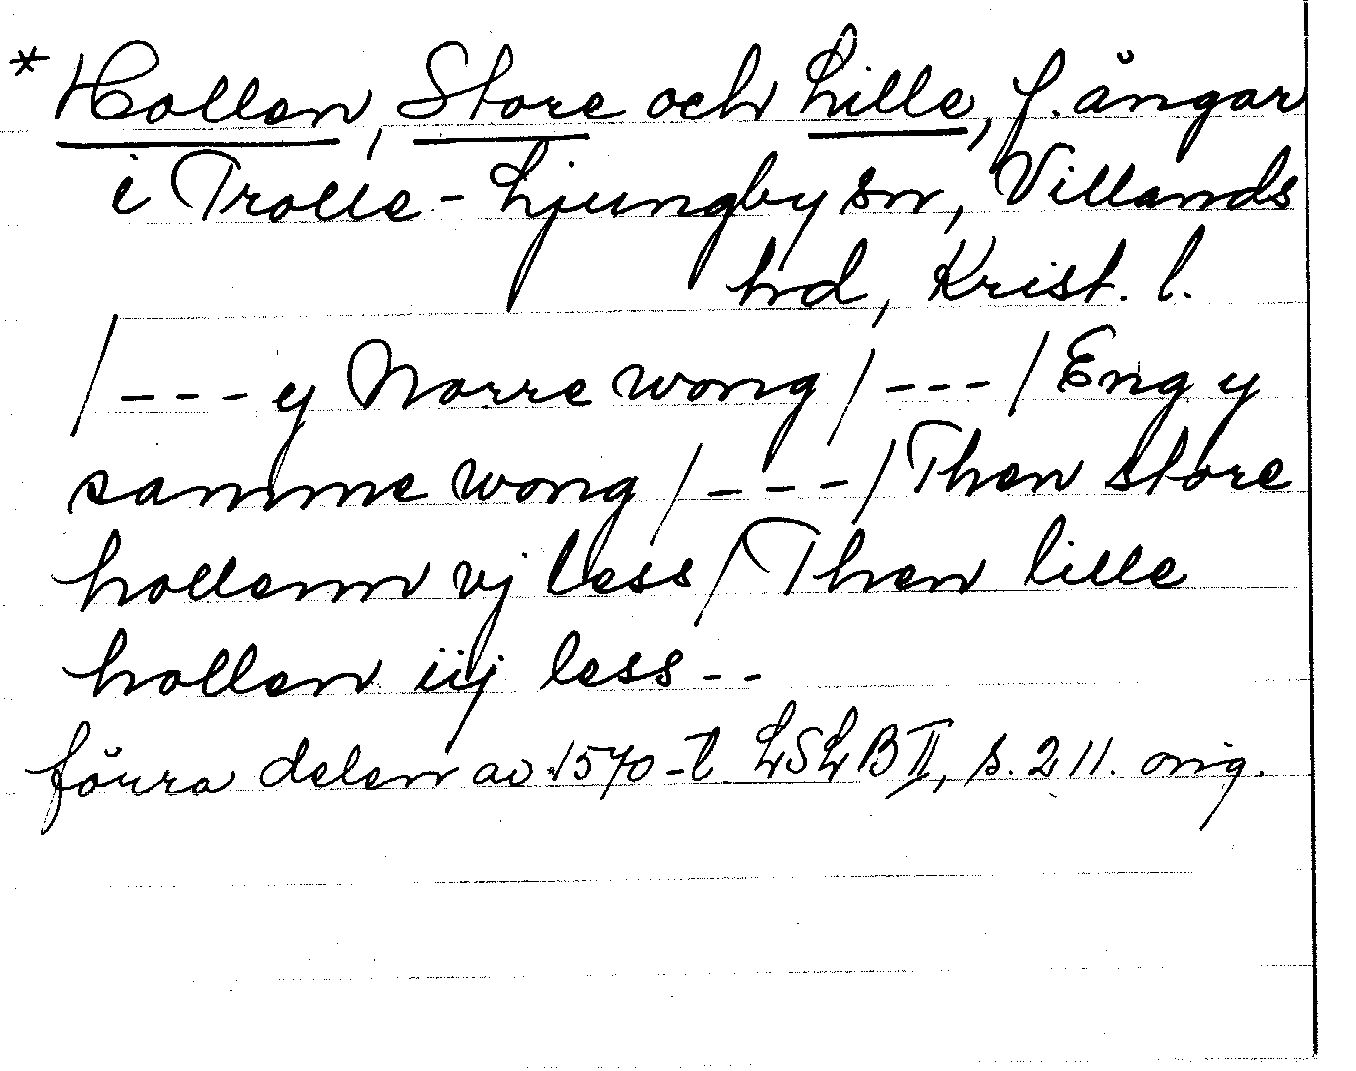 * Hollen, Store och Lille, f. ängar
i Trolle-Ljungby sn, Villands
hd, Krist. l.
/---y Norre wong/---/Eng y
samme wong/---/Then store
hollenn vj less/Then lille
hollen iij less--
förra delen av 1570-t LSLB II, s. 211. orig.